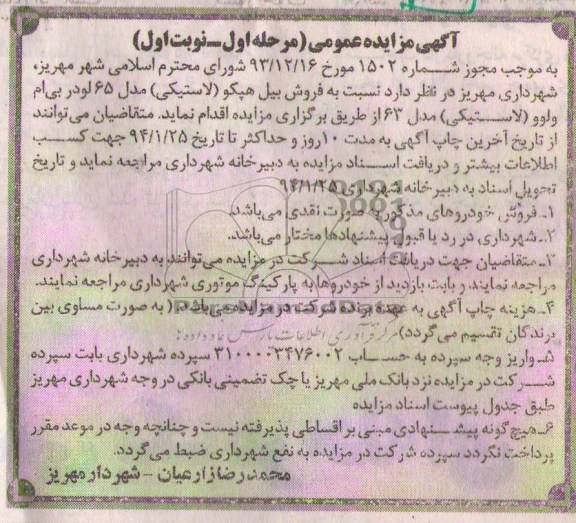 آگهی مزایده عمومی (مرحله اول ـ نوبت اول)
به موجب مجوز شماره ۱۵۰۲ مورخ ۹۳/۱۲/۱۶ شورای محترم اسلامی شهر مهریز،
شهرداری مهریز در نظر دارد نسبت به فروش بیل هپکو (لاستیکی) مدل ۶۵ لودر بی‌ام
ولوو (لاستیکی) مدل ۶۳ از طریق برگزاری مزایده اقدام نماید. متقاضیان می‌توانند
از تاریخ آخرین چاپ آگهی به مدت ۱۰ روز و حداکثر تا تاریخ ۹۴/۱/۲۵ جهت کسب
اطلاعات بیشتر و دریافت اسناد مزایده به دبیرخانه شهرداری مراجعه نماید و تاریخ
تحویل اسناد به دبیرخانه شهرداری ۹۴/۱/۲۵
۱ـ فروش خودروهای مذکور به صورت نقدی می‌باشد.
۲ـ شهرداری در رد یا قبول پیشنهادها مختار می‌باشد.
۳ـ متقاضیان جهت دریافت اسناد شرکت در مزایده می‌توانند به دبیرخانه شهرداری
مراجعه نمایند و بابت بازدید از خودروها به پارکینگ موتوری شهرداری مراجعه نمایند.
۴ـ هزینه چاپ آگهی به عهده برنده شرکت در مزایده می‌باشد. ( به صورت مساوی بین
برندگان تقسیم می‌گردد)
۵ـ واریز وجه سپرده به حساب ۳۱۰۰۰۰۳۴۷۶۰۰۲ سپرده شهرداری بابت سپرده
شرکت در مزایده نزد بانک ملی مهریز یا چک تضمینی بانکی در وجه شهرداری مهریز
طبق جدول پیوست اسناد مزایده
۶ـ هیچ گونه پیشنهادی مبنی بر اقساطی پذیرفته نیست و چنانچه وجه در موعد مقرر
پرداخت نگردد سپرده شرکت در مزایده به نفع شهرداری ضبط می‌گردد.
محمدرضا زارعیان - شهردار مهریز